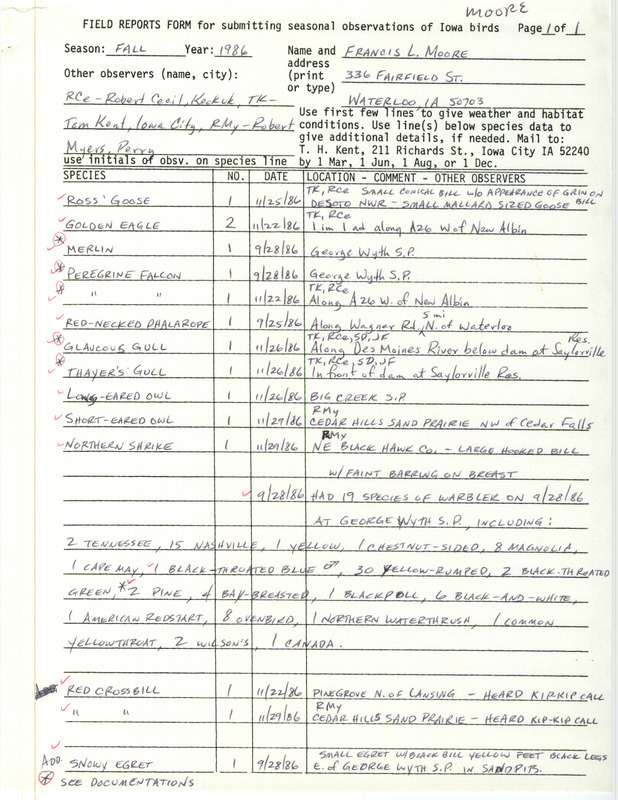 MOORE
FIELD REPORTS FORM for submitting seasonal observations of Iowa birds Page 1 of 1
Season: FALL Year: 1986 Name and FRANCIS L. MOORE
address
Other observers (name, city): (print 336 FAIRFIELD ST.
or type)
RCe - Robert Cecil, Keokuk, TK- WATERLOO, IA 50703
Tom Kent, Iowa City, RMy - Robert
Myers, Perry
use initials of obsv. on species line
Use first few lines to give weather and habitat
conditions. Use line(s) below species data to
give additional details, if needed. Mail to:
T. H. Kent, 211 Richards St., Iowa City IA 52240
by 1 Mar, 1 Jun, 1 Aug, or 1 Dec.
SPECIES NO. DATE LOCATION - COMMENT - OTHER OBSERVERS
TK, RCe SMALL CONICAL BILL W/O APPEARANCE OF GRIN ON BILL
ROSS' GOOSE 1 11/25/86 DESOTO NWR - SMALL MALLARD SIZED GOOSE
TK, RCe
GOLDEN EAGLE 2 11/22/86 1 im 1 ad along A26 W of New Albin
* MERLIN 1 9/28/86 George Wyth S.P.
* PEREGRINE FALCON 1 9/28/86 George Wyth S.P.
TK, RCe
* " " 1 11/22/86 Along A26 W. of New Albin
RED-NECKED PHALAROPE 1 9/25/86 Along Wagner Rd, 5 mi N. of Waterloo
TK, RCe, SD, JF
* GLAUCOUS GULL 1 11/26/86 Along Des Moines River below dam at Saylorville Res.
TK, RCe, SD, JF
* THAYER'S GULL 1 11/26/86 In front of dam at Saylorville Res.
LONG-EARED OWL 1 11/26/86 BIG CREEK S.P.
RMy
SHORT-EARED OWL 1 11/29/86 CEDAR HILLS SAND PRAIRIE NW of Cedar Falls
RMy
NORTHERN SHRIKE 1 11/29/86 NE BLACK HAWK CO. - LARGE HOOKED BILL
W/FAINT BARRING ON BREAST
9/28/86 HAD 19 SPECIES OF WARBLER ON 9/28/86
AT GEORGE WYTH S.P., INCLUDING:
2 TENNESSEE, 15 NASHVILLE, 1 YELLOW, 1 CHESTNUT-SIDED, 8 MAGNOLIA,
1 CAPE MAY, 1 BLACK-THROATED BLUE ♂, 30 YELLOW-RUMPED, 2 BLACK-THROATED
GREEN, *2 PINE, 4 BAY-BREASTED, 1 BLACKPOLL, 6 BLACK-AND-WHITE,
1 AMERICAN REDSTART, 8 OVENBIRD, 1 NORTHERN WATERTHRUSH, 1 COMMON
YELLOWTHROAT, 2 WILSON'S, 1 CANADA.
RED CROSSBILL 1 11/22/86 PINEGROVE N. OF LANSING - HEARD KIP-KIP CALL
RMy
" " 1 11/29/86 CEDAR HILLS SAND PRAIRIE - HEARD KIP-KIP CALL
SMALL EGRET W/BLACK BILL YELLOW FEET BLACK LEGS
ADD. SNOWY EGRET 1 9/28/86 E. OF GEORGE WYTH S.P. IN SANDPITS.
* SEE DOCUMENTATIONS